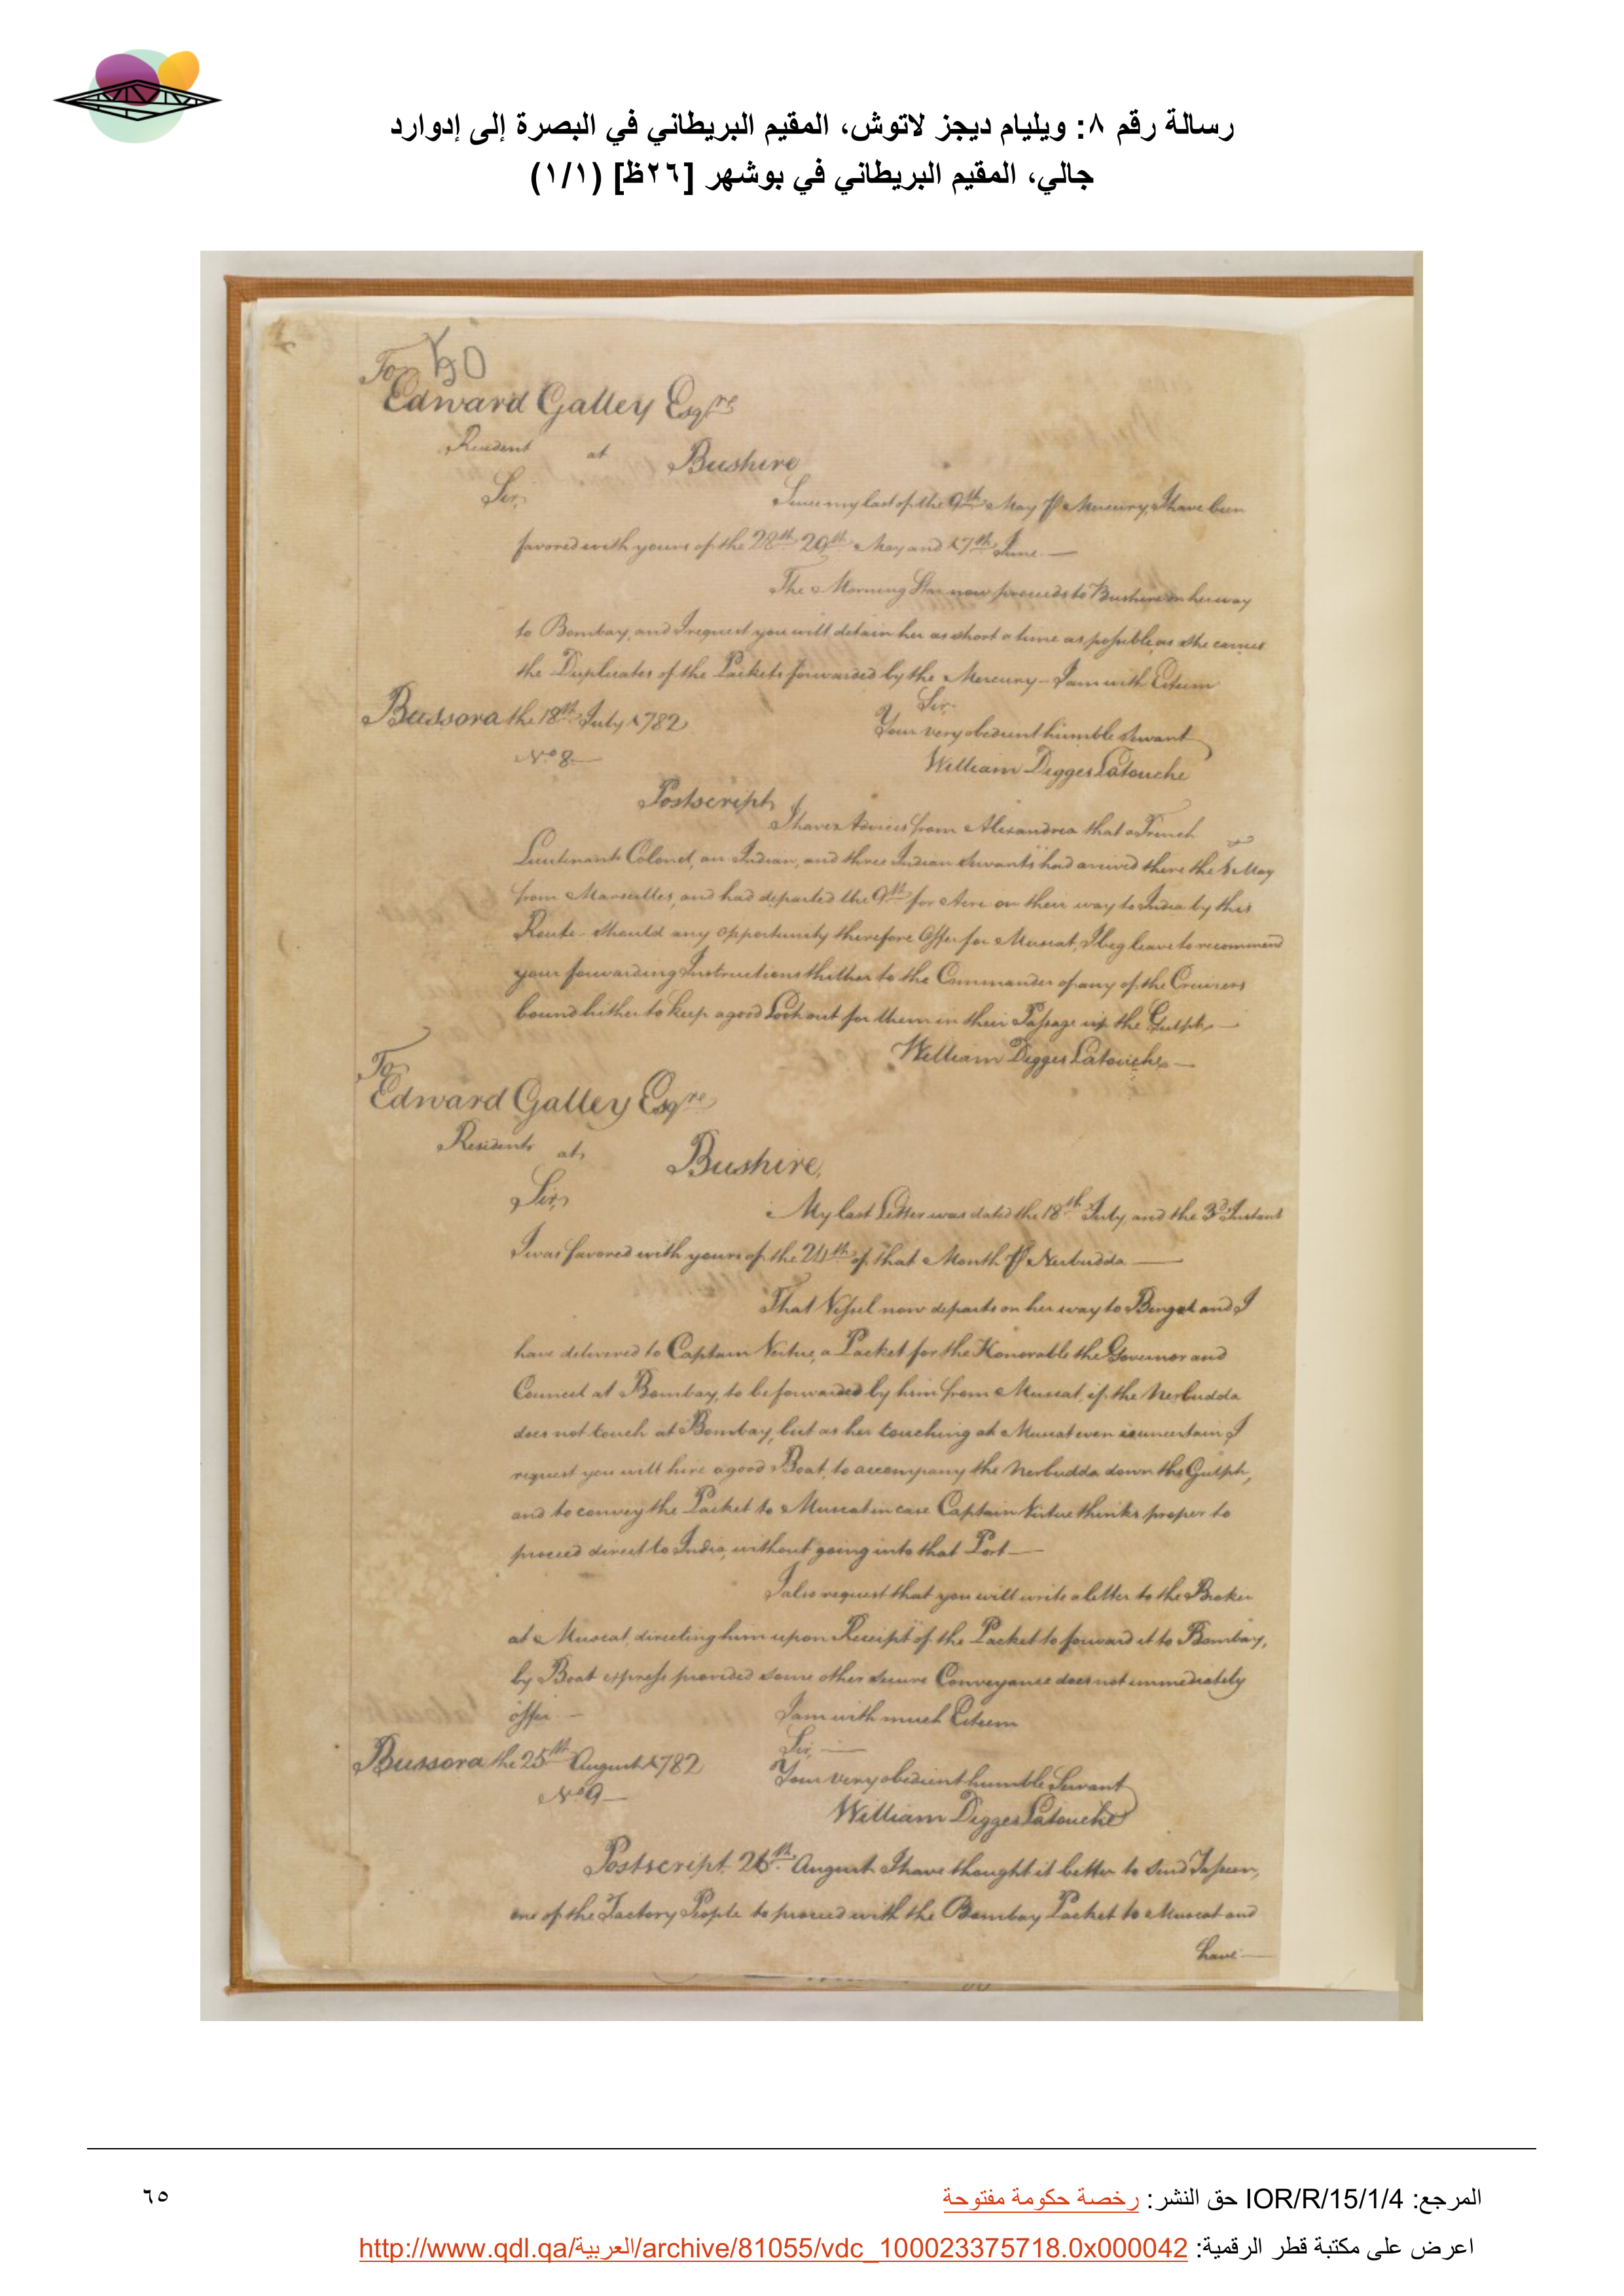 رسالة رقم ٨: ويليام ديجز لاتوش، المقيم البريطاني في البصرة إلى إدوارد
جالي، المقيم البريطاني في بوشهر [٢٦ظ] (١/١)
To
Edward Galley Esqre
Resident at Bushire
Sir,
Since my last of the 9th May P Mercury, I have been
favored with yours of the 28th 29th May and 17th June.—
The Morning Star now proceeds to Bushire on her way
to Bombay, and I request you will detain her as short a time as possible, as she carries
the Duplicates of the Packets forwarded by the Mercury— I am with Esteem
Sir.
Bussora the 18th July 1782
Your very obedient humble Servant
No 8—
William Digges Latouche
Postscript
I have Advices from Alexandria that a French
Lieutenant Colonel, an Indian, and three Indian Servants had arrived there the May
from Marseilles, and had departed the 9th for Acre on their way to India by this
Route— should any opportunity therefore Offer for Muscat, I beg leave to recommend
your forwarding Instructions thither to the Commander of any of the Cruizers
bound hither to keep a good Look out for them in their Passage up the Gulph.—
William Digges Latouche—
To
Edward Galley Esqre
Resident at Bushire,
Sir,
My last Letter was dated the 18th July, and the 3d Instant
I was favored with yours of the of that Month P Nerbudda—
That Vessel now departs on her way to Bengal and I
have delivered to Captain Virtue, a Packet for the Honorable the Governor and
Council at Bombay, to be forwarded by him from Muscat, if the Nerbudda
does not touch at Bombay, but as her touching at Muscat even is uncertain I
request you will hire a good Boat, to accompany the Nerbudda down the Gulph,
and to convey the Packet to Muscat in case Captain Virtue thinks proper to
proceed direct to India, without going into that Port—
I also request that you will write a letter to the Broker
at Muscat, directing him upon Receipt of the Packet to forward it to Bombay,
by Boat express provided some other secure Conveyance does not immediately
offer—
I am with much Esteem
Sir,—
Bussora the 25th August 1782
Your very obedient humble Servant
No 9—
William Digges Latouche
Postscript. 26th August I have thought it better to send
one of the Factory People to proceed with the Bombay Packet to Muscat and
have—
المرجع: IOR/R/15/1/4 حق النشر: رخصة حكومة مفتوحة
٦٥
اعرض على مكتبة قطر الرقمية: http://www.qdl.qa/العربية/archive/81055/vdc_100023375718.0x000042